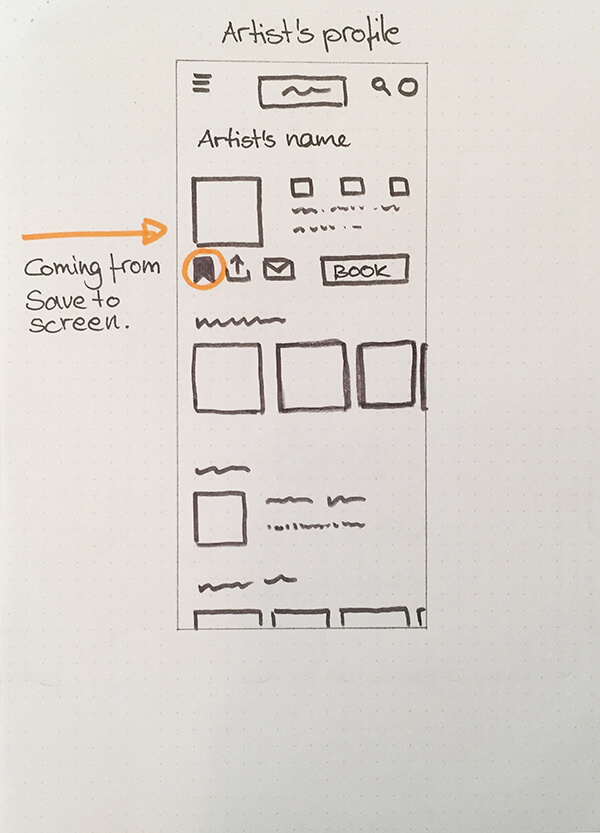 Artist's profile
Artist's name
Coming from
Save to
screen.
BOOK